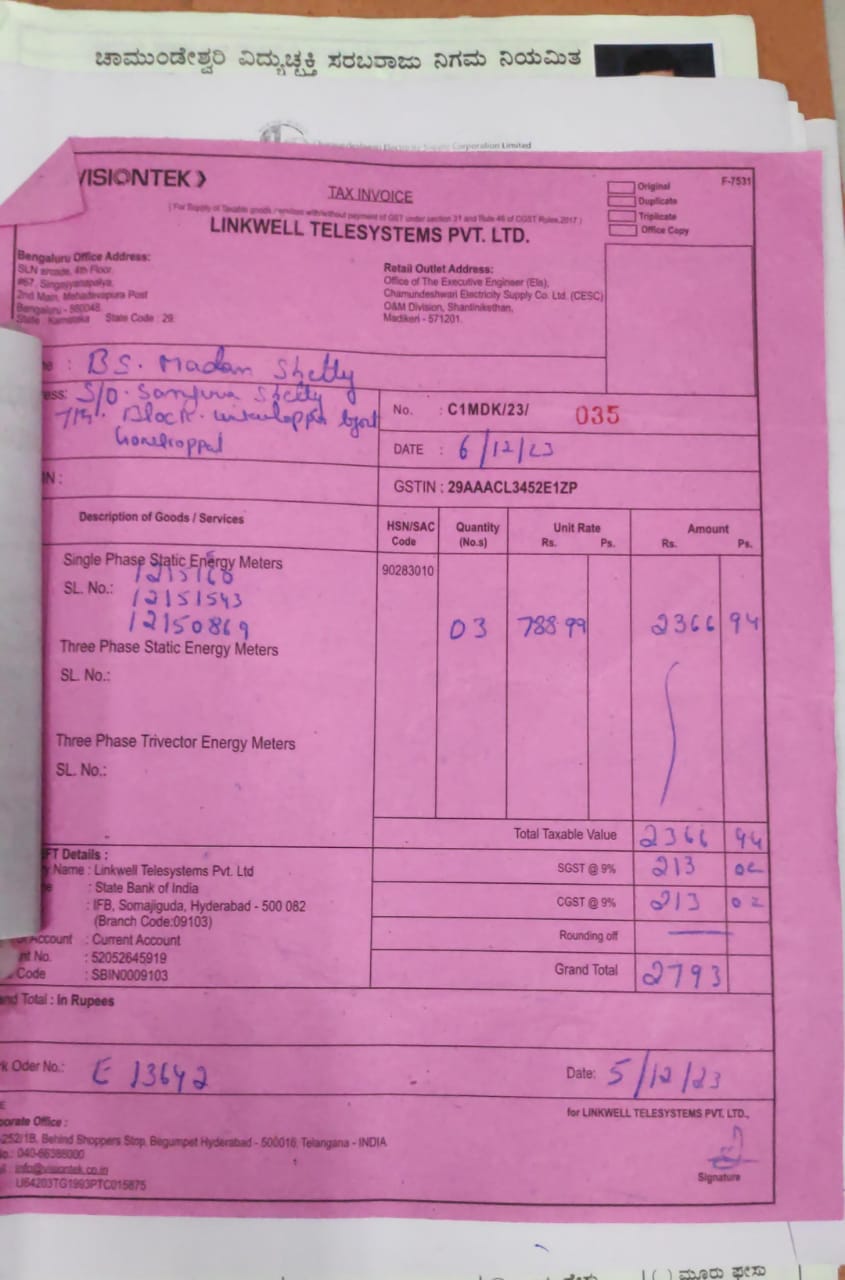 ಚಾಮುಂಡೇಶ್ವರಿ ವಿದ್ಯುಚ್ಛಕ್ತಿ ಸರಬರಾಜು ನಿಗಮ ನಿಯಮಿತ
Electricity Supply Corporation Limited
VISIONTEK
TAX INVOICE
( For Supply of Taxable goods / services with/without payment of GST under section 31 and Rule 46 of CGST Rules, 2017 )
LINKWELL TELESYSTEMS PVT. LTD.
Original
Duplicate
Triplicate
Office Copy
F-7531
Bengaluru Office Address:
SLN arcade, 4th Floor,
#67, Singayyanapalya,
2nd Main, Mahadevapura Post
Bengaluru - 560048.
State : Karnataka State Code : 29.
Retail Outlet Address:
Office of The Executive Engineer (Ele),
Chamundeshwari Electricity Supply Co. Ltd. (CESC)
O&M Division, Shantinikethan,
Madikeri - 571201.
: B.S. Madan Shetty
ess: S/O. Shetty
7th Block
No. : C1MDK/23/ 035
DATE : 6/12/23
IN :
GSTIN : 29AAACL3452E1ZP
Description of Goods / Services
HSN/SAC Code
Quantity (No.s)
Unit Rate Rs. Ps.
Amount Rs. Ps.
Single Phase Static Energy Meters
90283010
SL. No.:
12151543
12150869
03 788.99 2366 94
Three Phase Static Energy Meters
SL. No.:
Three Phase Trivector Energy Meters
SL. No.:
Total Taxable Value 2366 94
SGST @ 9% 213 02
CGST @ 9% 213 02
Rounding off
Grand Total 2793
FT Details :
y Name : Linkwell Telesystems Pvt. Ltd
e : State Bank of India
: IFB, Somajiguda, Hyderabad - 500 082
(Branch Code:09103)
Account : Current Account
nt No. : 52052645919
Code : SBIN0009103
and Total : In Rupees
rk Oder No.: E 13642
Date: 5/12/23
for LINKWELL TELESYSTEMS PVT. LTD.,
Signature
porate Office :
-252/1B, Behind Shoppers Stop, Begumpet Hyderabad - 500016, Telangana - INDIA
No.: 040-66388000
info@visiontek.co.in
U64203TG1993PTC015875
ಮೂರು ಫೇಸು